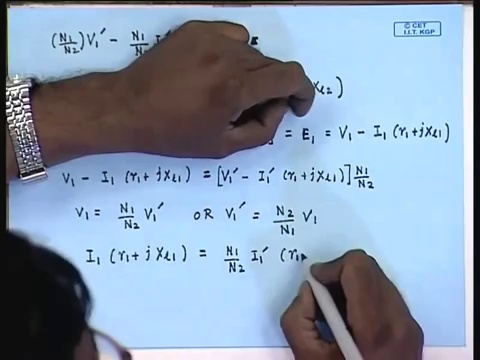 © CET
I.I.T. KGP
(N1/N2) V1' - N1/N
x_l2)
= E1 = V1 - I1 (r1 + j x_l1)
V1 - I1 (r1 + j x_l1) = [V1' - I1' (r1 + j x_l1)] N1/N2
V1 = N1/N2 V1' OR V1' = N2/N1 V1
I1 (r1 + j x_l1) = N1/N2 I1' (r1